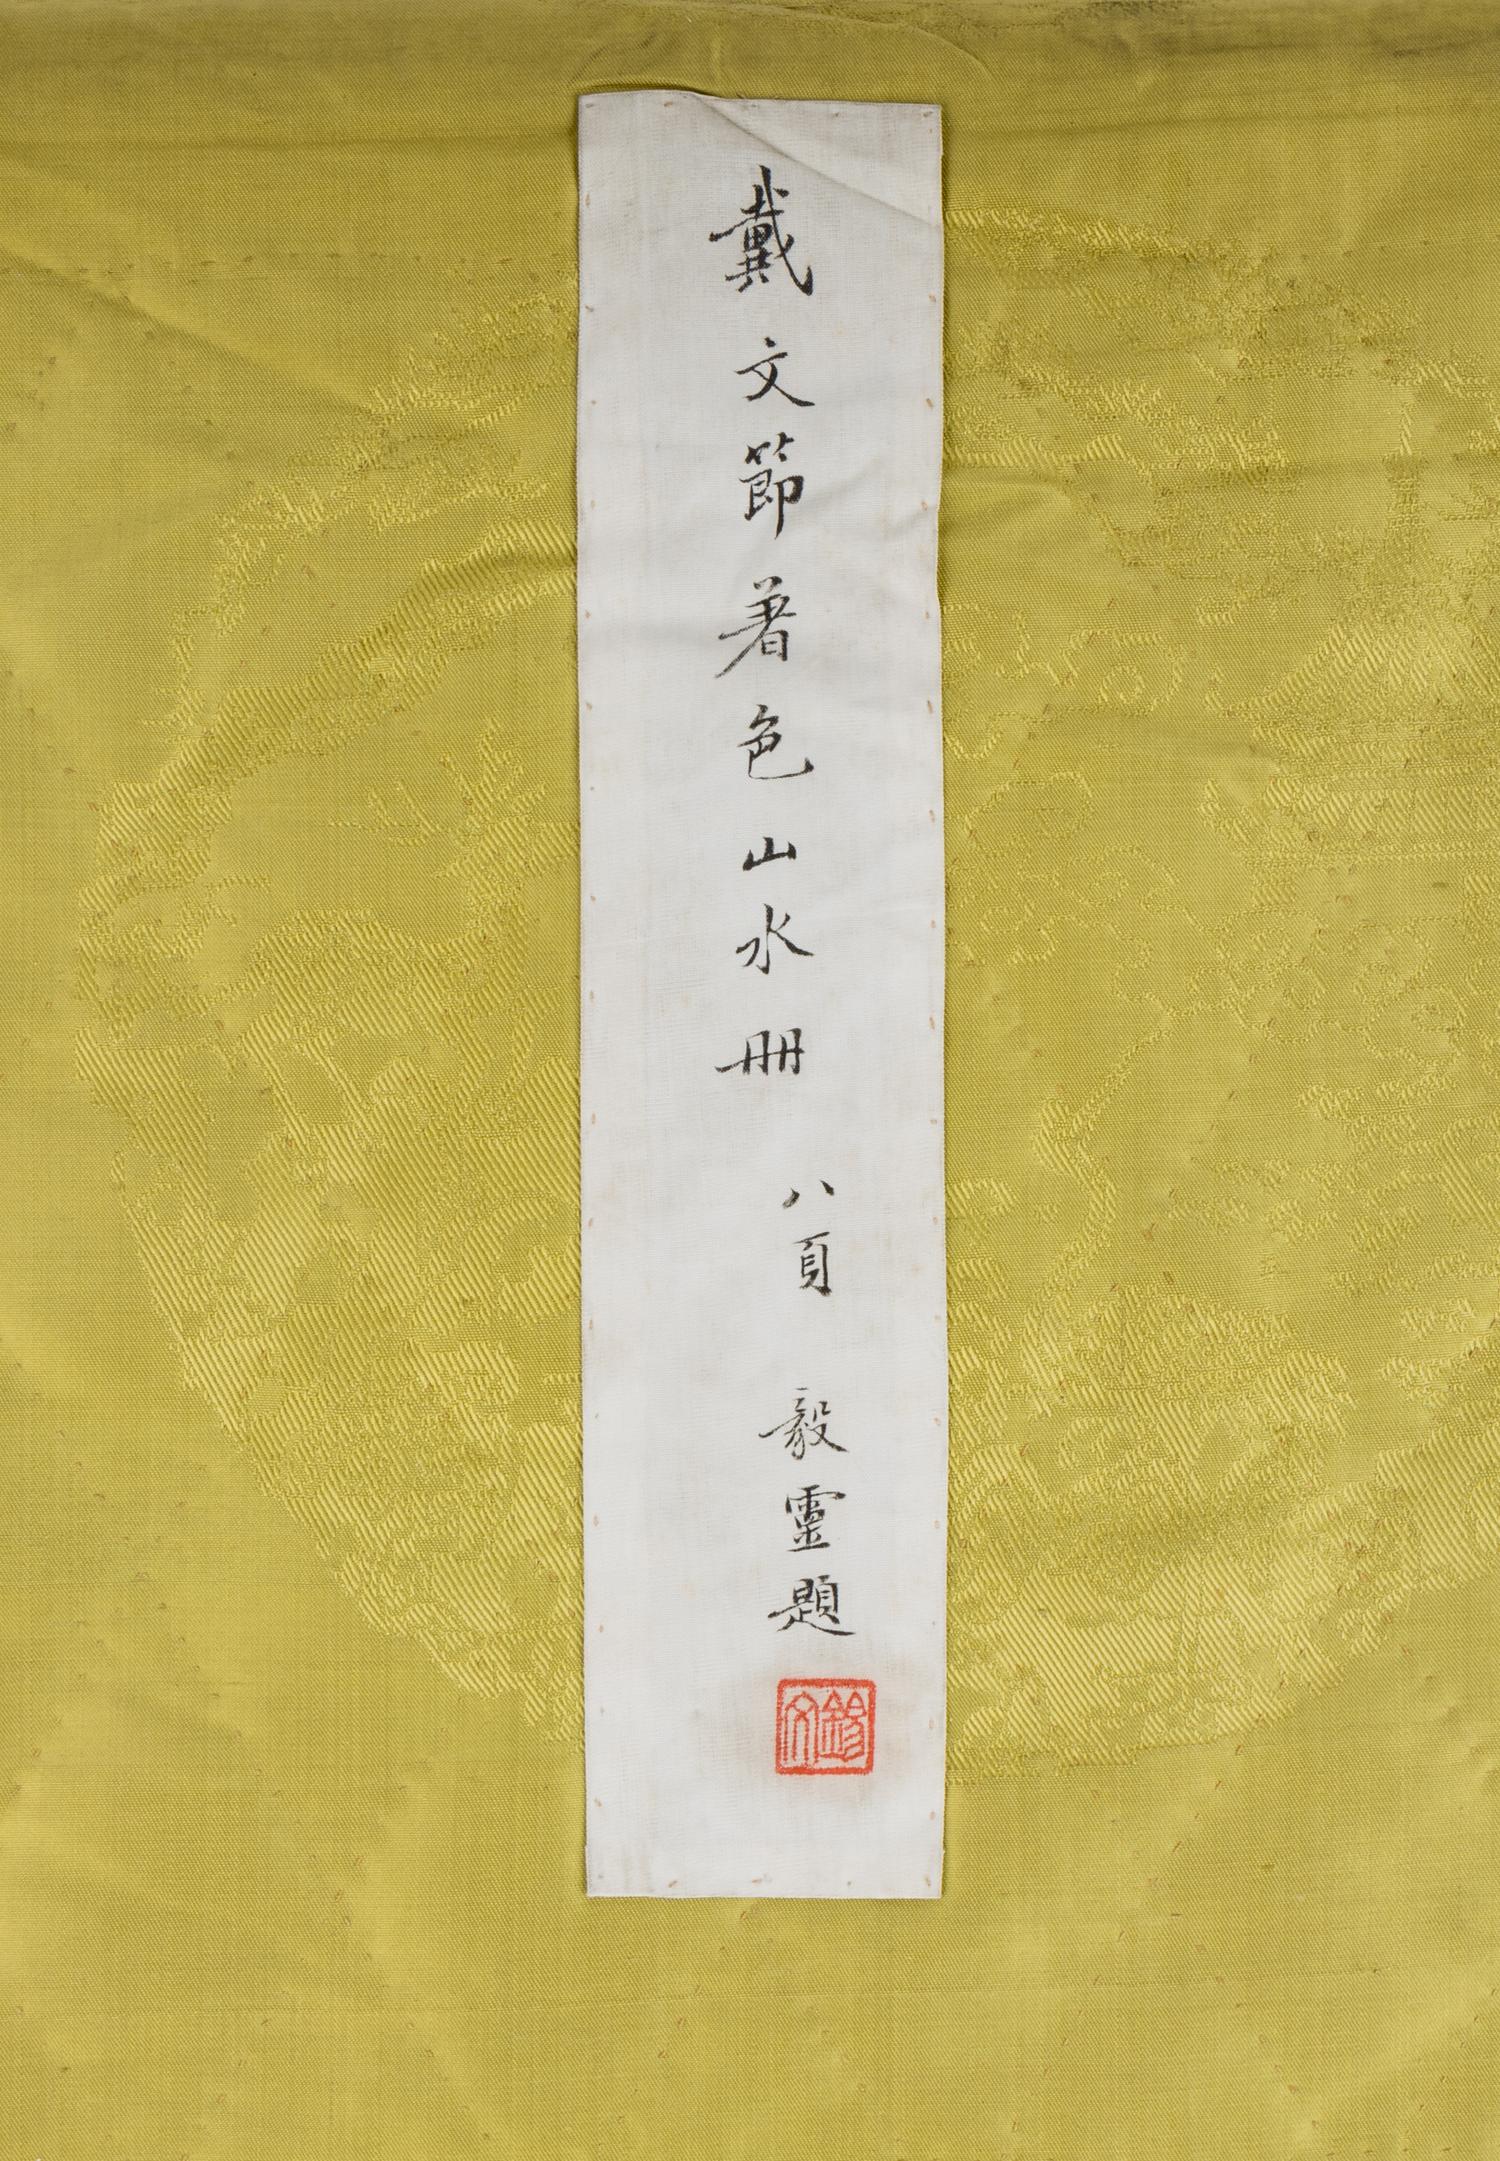 戴文節著色山水冊
八頁
毅靈題
錫文